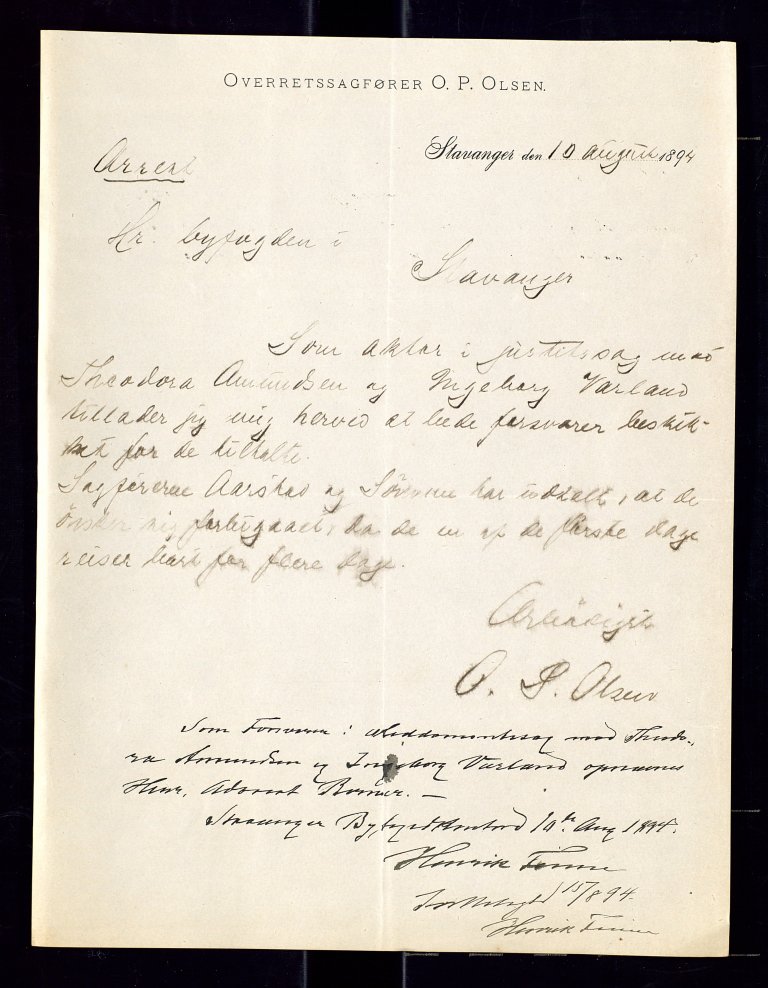 OVERRETSSAGFØRER O. P. OLSEN.
Stavanger den 10 August 1894
Arrest
Hr. byfogden i
Stavanger
Som aktor i justitssag mod
Theodora Amundsen og Ingeborg Varland
tillader jeg mig herved at bede forsvarer beskik-
ket for de tiltalte.
Sagførerne Aarstad og har udtalt, at de
ønsker sig forbigaaet, da de en af de første dage
reiser bort for flere dage.
Ærbødigst
O. P. Olsen
Som Forsvarer i Meddomsretssag mod Theodo-
ra Amundsen og Ingeborg Varland opnævnes
Herr. Advocat
Stavanger 10de Aug 1894.
Henrik
15/8 94.
Henrik